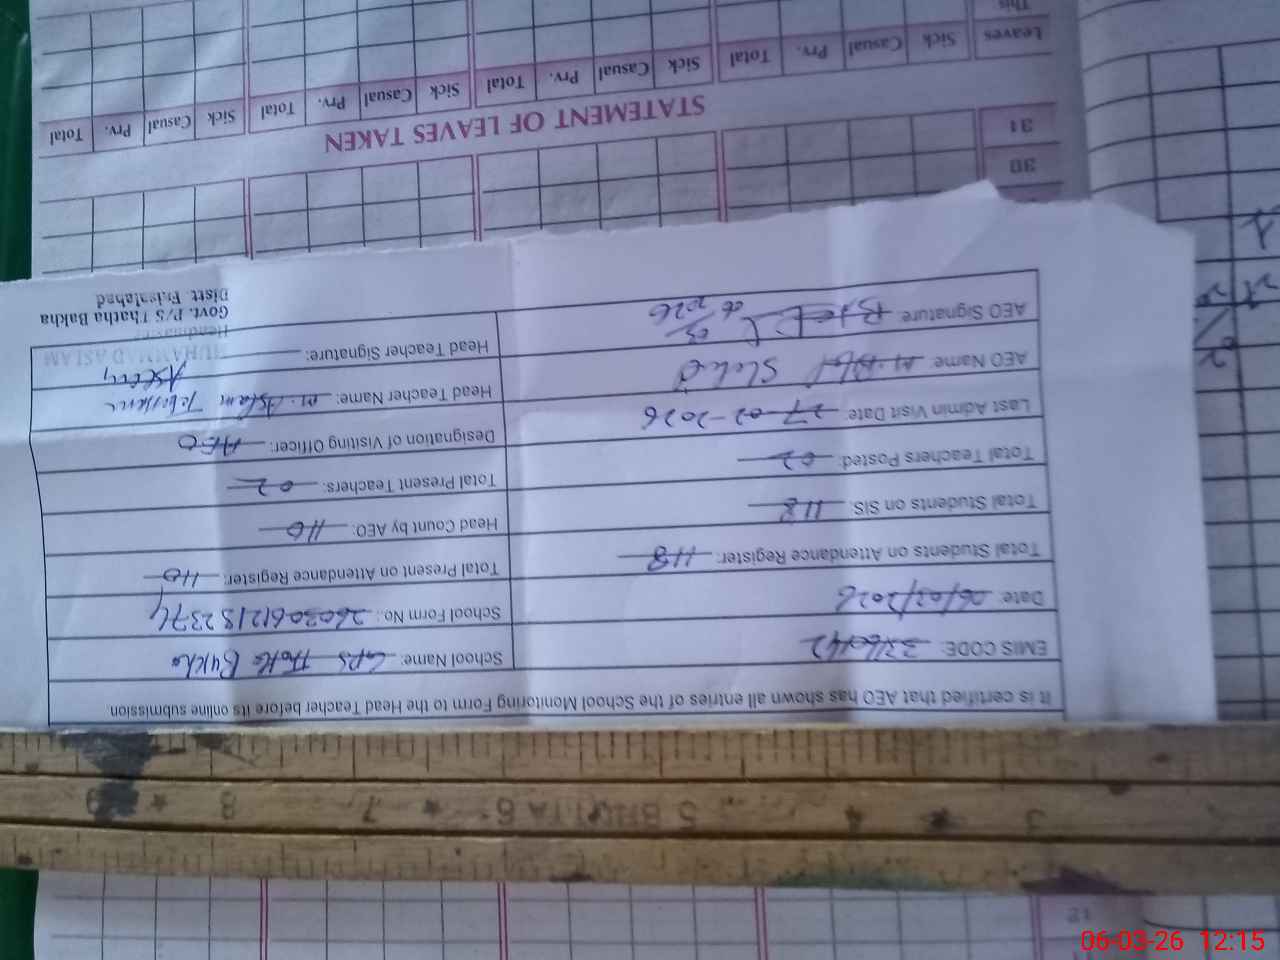 12
3 ★ 4 ★ 5 BHUTTA 6" ★ 7 8 ★ 9
It is certified that AEO has shown all entries of the School Monitoring Form to the Head Teacher before its online submission
EMIS CODE: School Name: GPS Thatta Bukha
Date: 06/03/2026 School Form No.:
Total Students on Attendance Register: 118 Total Present on Attendance Register: 110
Total Students on SIS: 118 Head Count by AEO: 110
Total Teachers Posted: 02 Total Present Teachers: 02
Last Admin Visit Date: 27-02-2026 Designation of Visiting Officer: AEO
AEO Name: Head Teacher Name: M. Aslam
AEO Signature: Head Teacher Signature:
MUHAMMAD ASLAM
Headmaster
Govt. P/S Thatha Bakha
Distt. Faisalabad
30
31
STATEMENT OF LEAVES TAKEN
Leaves Sick Casual Prv. Total Sick Casual Prv. Total Sick Casual Prv. Total Sick Casual Prv. Total
This
06-03-26 12:15